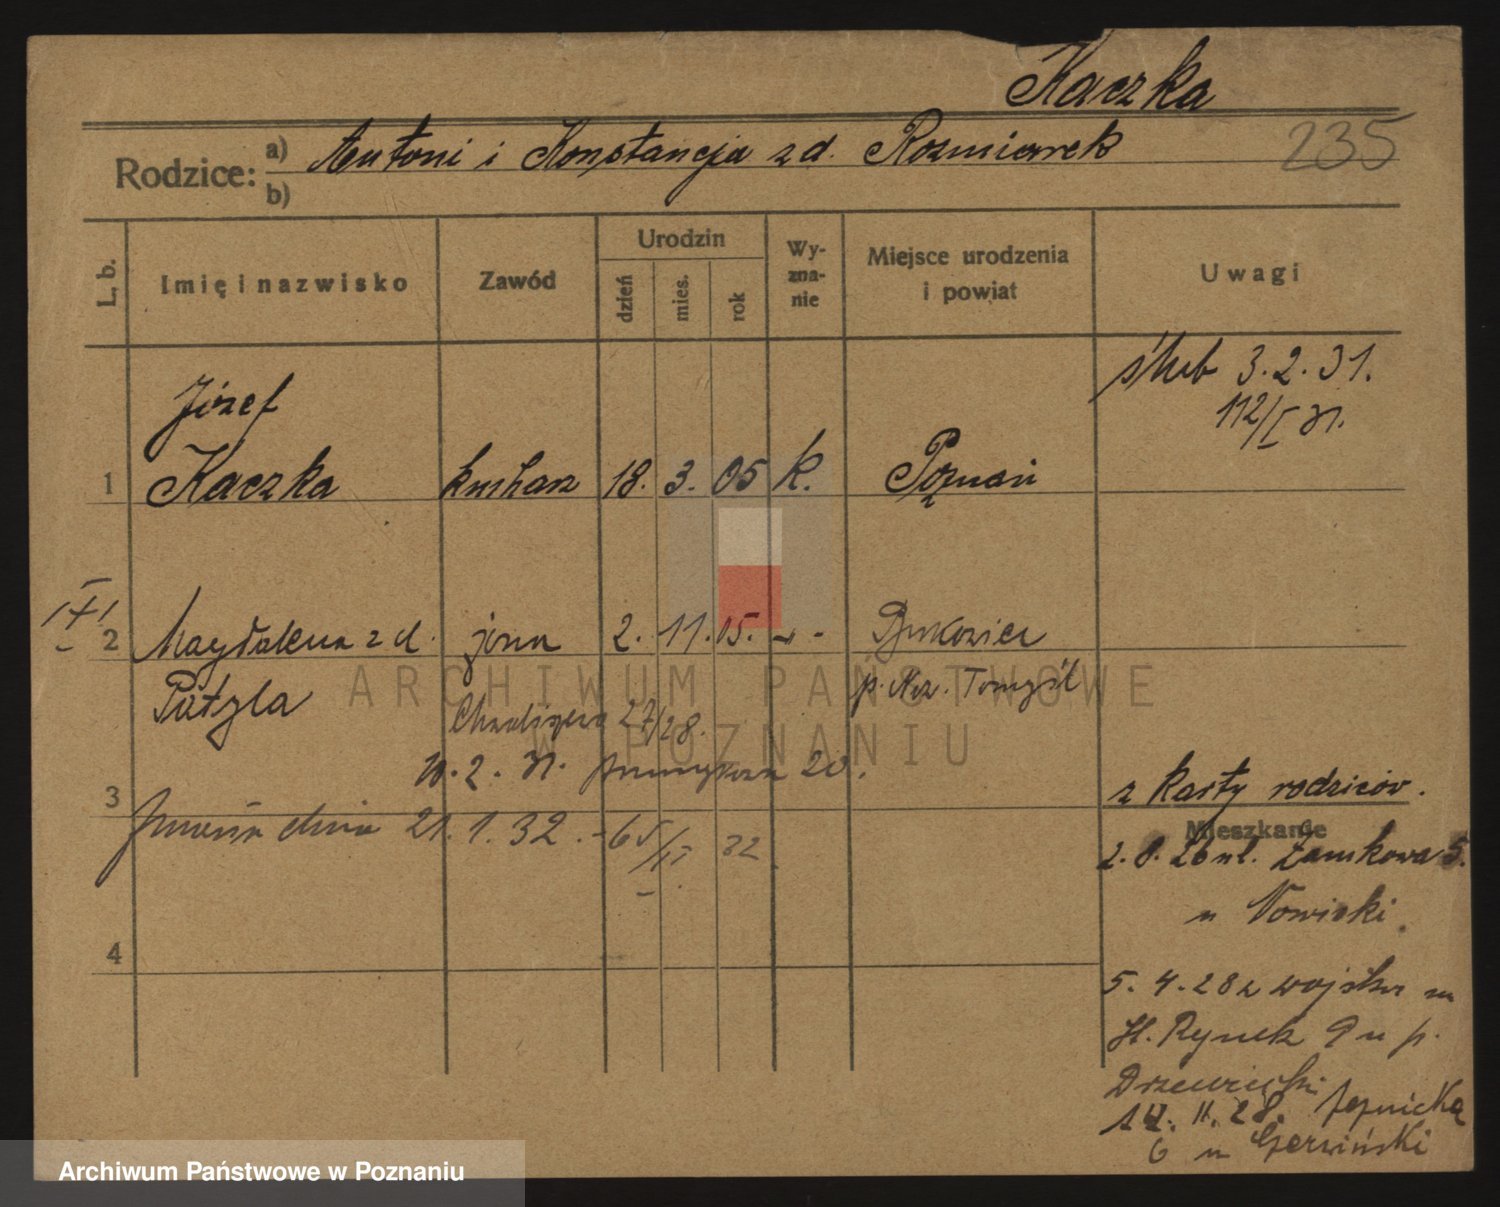 Kaczka
235
Rodzice: a) Antoni i Konstancja z d. Rozmiarek
b)
L. b. Imię i nazwisko Zawód Urodzin dzień mies. rok Wy-zna-nie Miejsce urodzenia i powiat Uwagi
ślub 3.2.31.
112/I
Józef
1 Kaczka kucharz 18. 3. 05 k. Poznań
2 Magdalena z d. żona 2. 11. 05. - " - Bukowiec
Patzla p. N. Tomyśl
27/28.
20.
z karty rodziców.
3
dnia 21.1.32. -65/II 32
Mieszkanie
2.8.26 ul. Zamkowa 5.
u Nowicki.
4
5.4.28 z wojska na
St. Rynek 9 u p.
Drzewiecki
14.11.28.
6 u Czerwiński
ARCHIWUM PAŃSTWOWE
W POZNANIU
Archiwum Państwowe w Poznaniu